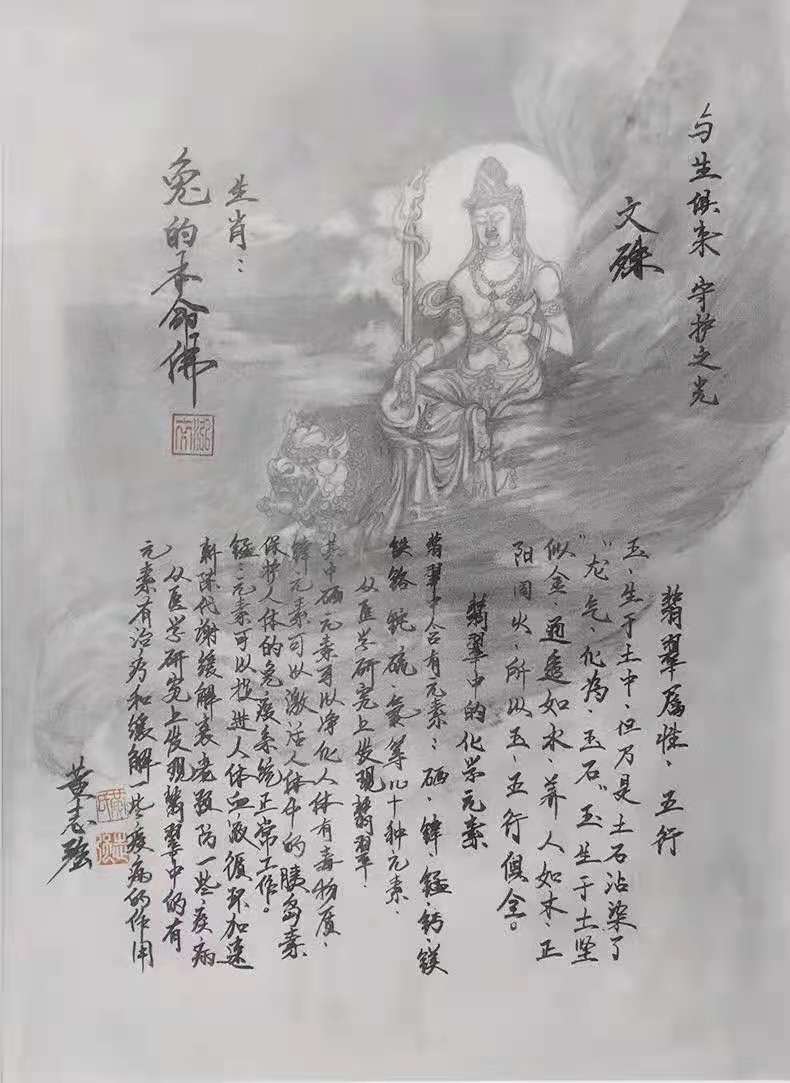 与生俱来 守护之光
文殊
生肖：
兔的本命佛
翡翠属性、五行
玉、生于土中、但乃是土石沾染了
“龙气、化为、玉石”玉生于土坚
似金、通透如水、养人如木、正
阳同火、所以玉、五行俱全。
翡翠中的化学元素
翡翠中含有元素：硒、锌、锰、钙、镁
铁铬钝硫、氯等几十种元素、
从医学研究上发现翡翠、
其中硒元素可以净化人体有毒物质、
锌元素可以激活人体中的胰岛素
保护人体的免疫系统正常工作。
锰：元素可以促进人体血液循环加速
新陈代谢缓解衰老预防一些疾病
从医学研究上发现翡翠中的有
元素有治疗和缓解一些疾病的作用
黄志强